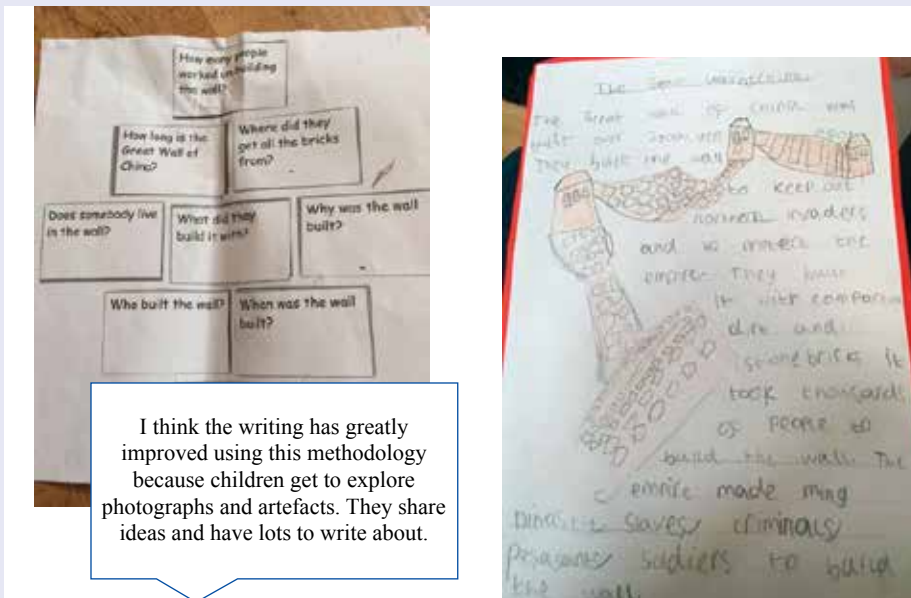 How many people
worked on building
the wall?
How long is the
Great Wall of
China?
Where did they
get all the bricks
from?
Does somebody live
in the wall?
What did they
build it with?
Why was the wall
built?
Who built the wall?
When was the wall
built?
I think the writing has greatly
improved using this methodology
because children get to explore
photographs and artefacts. They share
ideas and have lots to write about.
The
The Great wall of China was
built over
They built the wall
to keep out
northern invaders
and to the
empire They built
it with
dirt and
stone bricks it
took thousands
of people to
build the wall The
emnire made ming
slaves criminals
to build
the wall